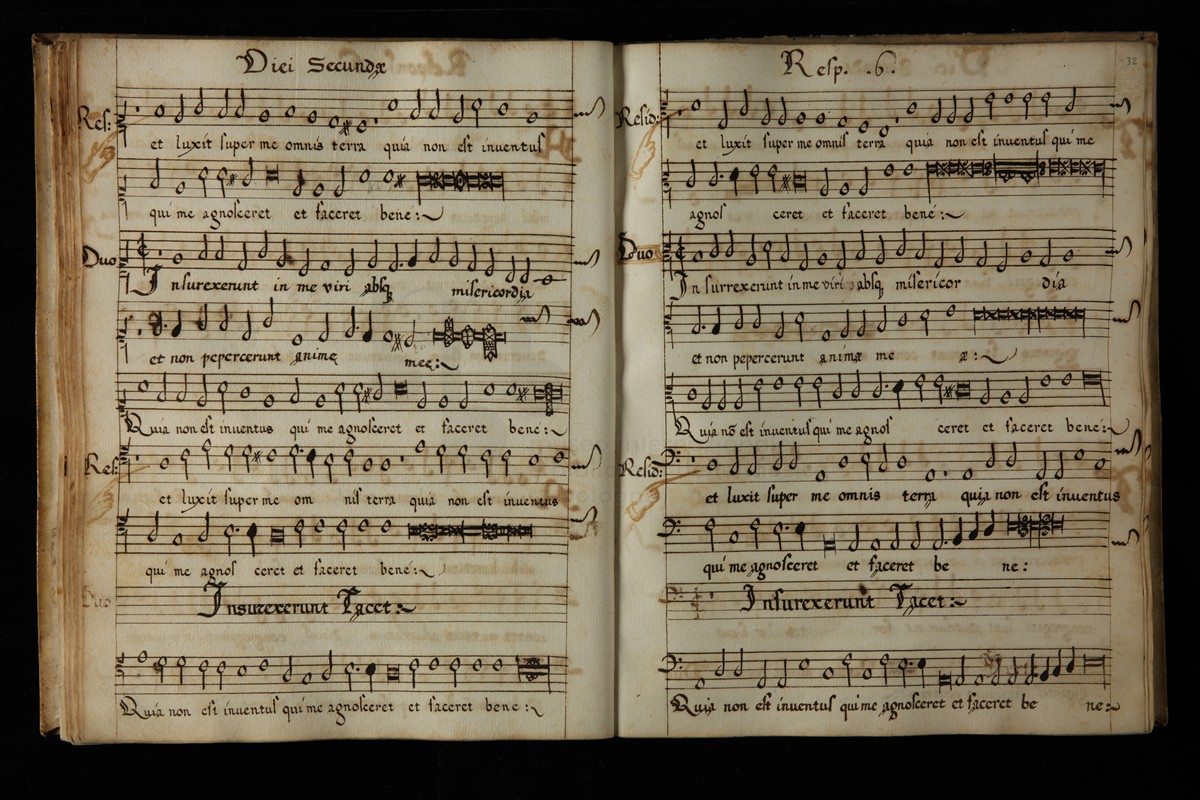 Diei Secundæ
Res:
et luxit super me omnis terra quia non est inventus
qui me agnosceret et faceret bene:
Duo
Insurexerunt in me viri absq misericordia
et non pepercerunt animę meę:
Quia non est inventus qui me agnosceret et faceret bene:
Res:
et luxit super me omnis terra quia non est inventus
qui me agnosceret et faceret bene:
Duo
Insurexerunt Tacet:
Quia non est inventus qui me agnosceret et faceret bene:
Resp. .6.
32
Resid:
et luxit super me omnis terra quia non est inventus qui me
agnosceret et faceret bene:
Duo
Insurrexerunt in me viri absq misericordia
et non pepercerunt animæ meæ:
Quia nō est inventus qui me agnosceret et faceret bene:
Resid:
et luxit super me omnis terra quia non est inventus
qui me agnosceret et faceret bene:
Insurexerunt Tacet:
Quia non est inventus qui me agnosceret et faceret bene: